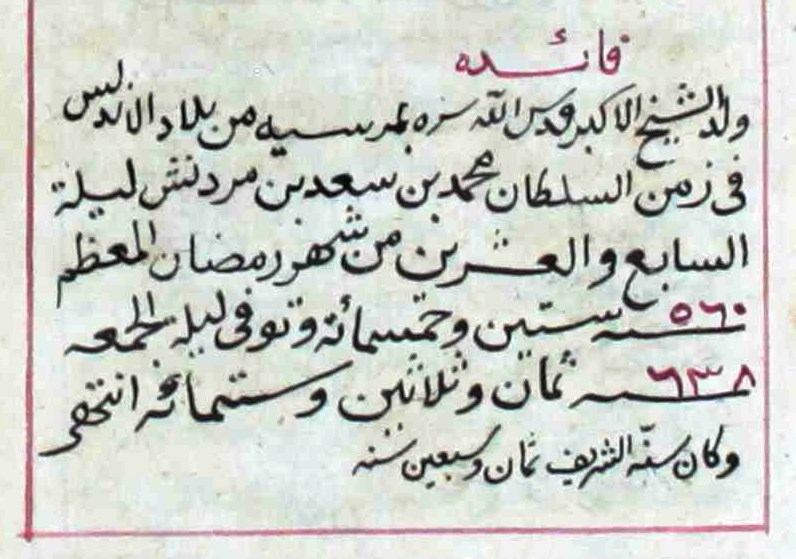 فائده
ولد الشيخ الاكبر قدس الله سره بمرسيه من بلاد الاندلس
فى زمن السلطان محمد بن سعد بن مردنش ليلة
السابع والعشرين من شهر رمضان المعظم
سنه ٥٦٠ ستين وخمسمائة وتوفى ليلة الجمعه
سنه ٦٣٨ ثمان وثلاثين وستمائه انتهى
وكان سنّه الشريف ثمان وسبعين سنه